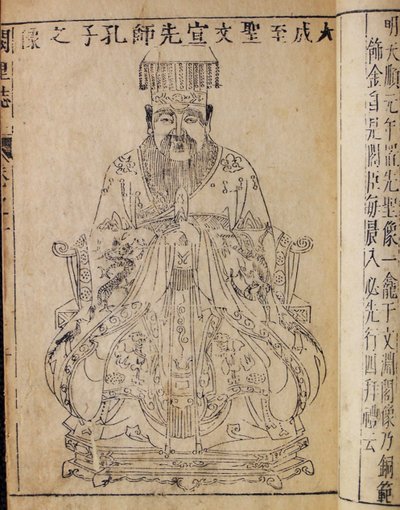 明天順元年置先聖像一龕于文淵閣像乃銅範
飾金自是閣臣每晨入必先行四拜禮云
大成至聖文宣先師孔子之像
闕里誌 卷之